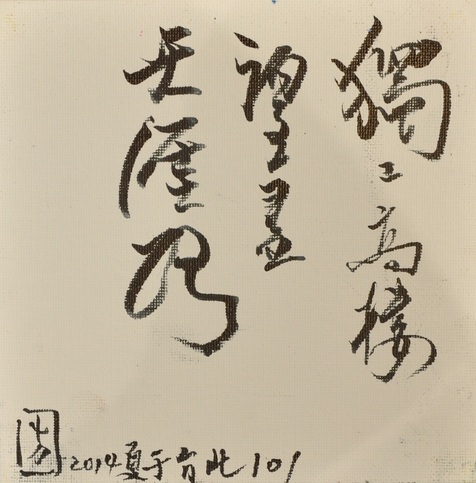 獨上高樓
望盡
天涯路
2014夏于台北101